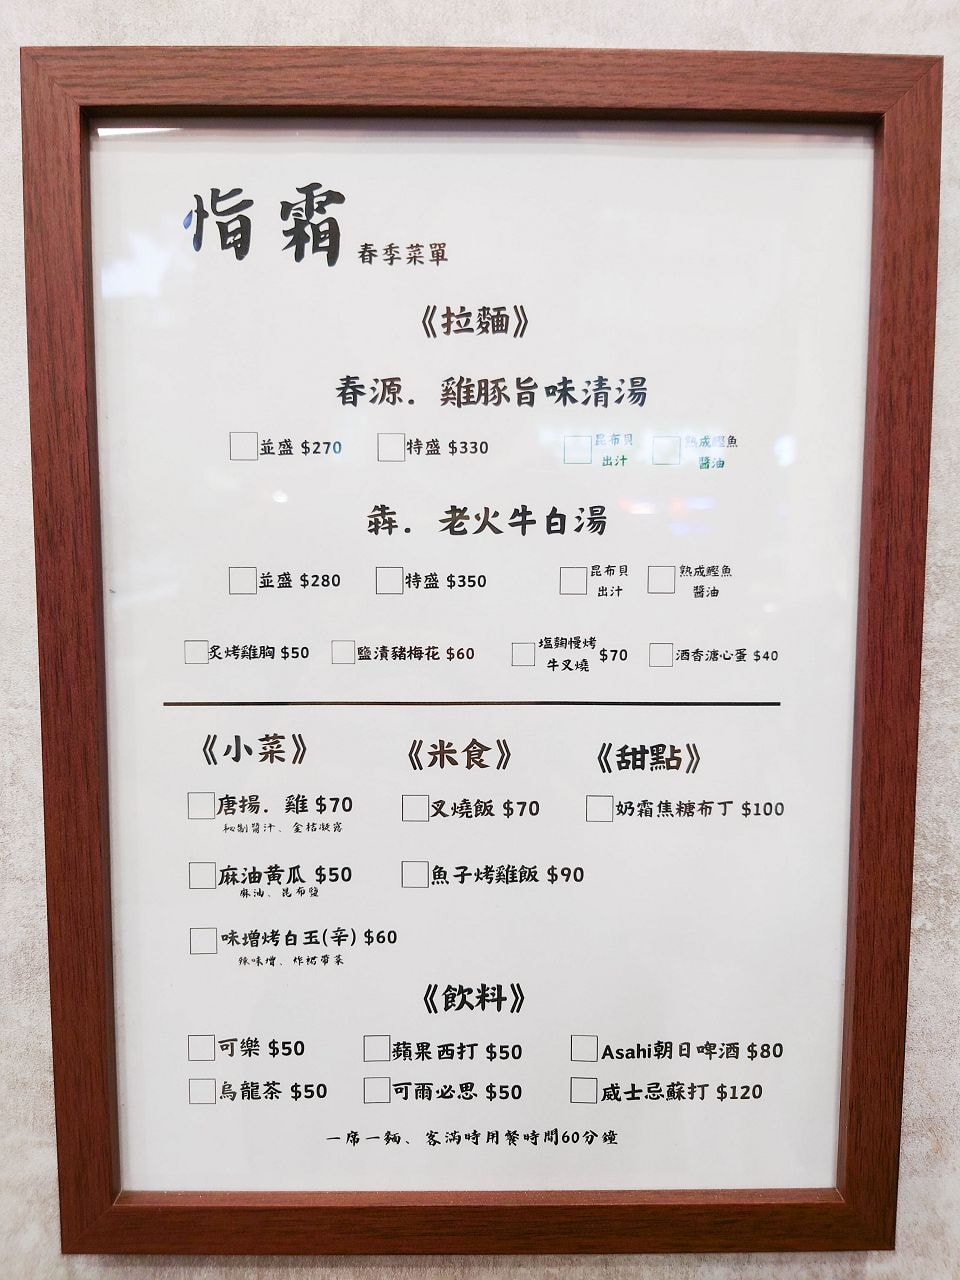 恉霜 春季菜單
《拉麵》
春源．雞豚旨味清湯
並盛 $270 特盛 $330 昆布貝出汁 熟成鰹魚醬油
犇．老火牛白湯
並盛 $280 特盛 $350 昆布貝出汁 熟成鰹魚醬油
炙烤雞胸 $50 鹽漬豬梅花 $60 塩麴慢烤牛叉燒 $70 酒香溏心蛋 $40
《小菜》 《米食》 《甜點》
唐揚．雞 $70 叉燒飯 $70 奶霜焦糖布丁 $100
秘製醬汁、金桔凝露
麻油黃瓜 $50 魚子烤雞飯 $90
麻油、昆布鹽
味增烤白玉(辛) $60
辣味增、炸裙帶菜
《飲料》
可樂 $50 蘋果西打 $50 Asahi朝日啤酒 $80
烏龍茶 $50 可爾必思 $50 威士忌蘇打 $120
一席一麵、客滿時用餐時間60分鐘